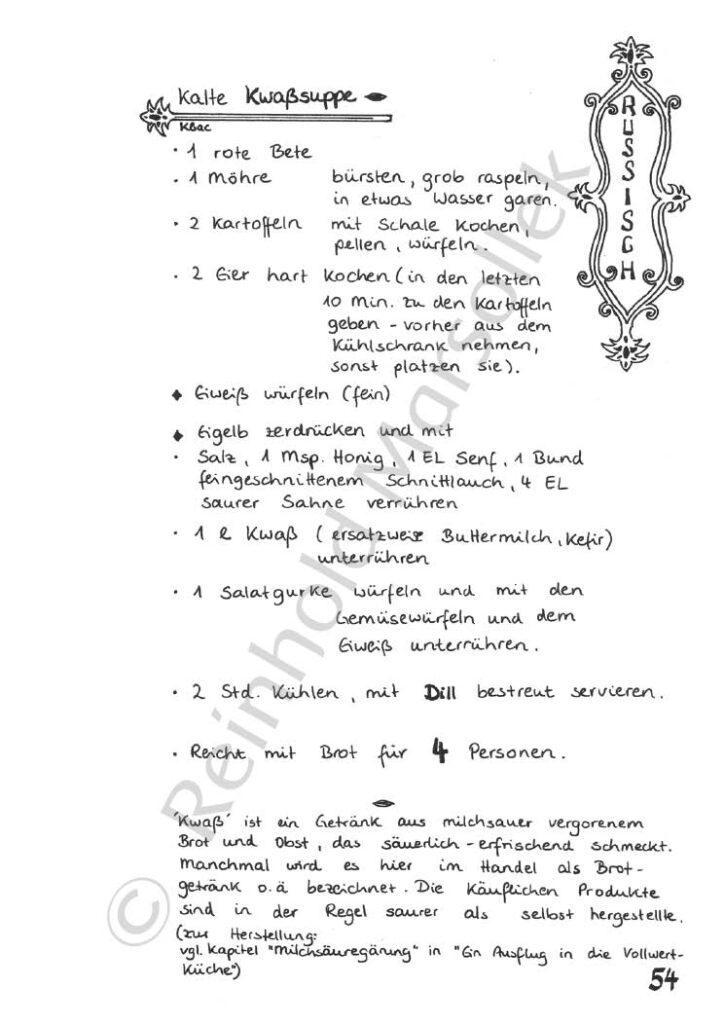 Kalte Kwaßsuppe
Квас
RUSSISCH
· 1 rote Bete
· 1 Möhre bürsten, grob raspeln,
in etwas Wasser garen.
· 2 Kartoffeln mit Schale Kochen,
pellen, würfeln.
· 2 Eier hart Kochen (in den letzten
10 Min. zu den Kartoffeln
geben - vorher aus dem
Kühlschrank nehmen,
sonst platzen sie).
◆ Eiweiß würfeln (fein)
◆ Eigelb zerdrücken und mit
· Salz, 1 Msp. Honig, 1 EL Senf, 1 Bund
feingeschnittenem Schnittlauch, 4 EL
saurer Sahne verrühren
· 1 l Kwaß (ersatzweise Buttermilch, Kefir)
unterrühren
· 1 Salatgurke würfeln und mit den
Gemüsewürfeln und dem
Eiweiß unterrühren.
· 2 Std. Kühlen, mit Dill bestreut servieren.
· Reicht mit Brot für 4 Personen.
'Kwaß' ist ein Getränk aus milchsauer vergorenem
Brot und Obst, das säuerlich-erfrischend schmeckt.
Manchmal wird es hier im Handel als Brot-
getränk o.ä bezeichnet. Die Käuflichen Produkte
sind in der Regel saurer als selbst hergestellte.
(zur Herstellung:
vgl. Kapitel "Milchsäuregärung" in "Ein Ausflug in die Vollwert-
Küche")
54
© Reinhold Marsollek